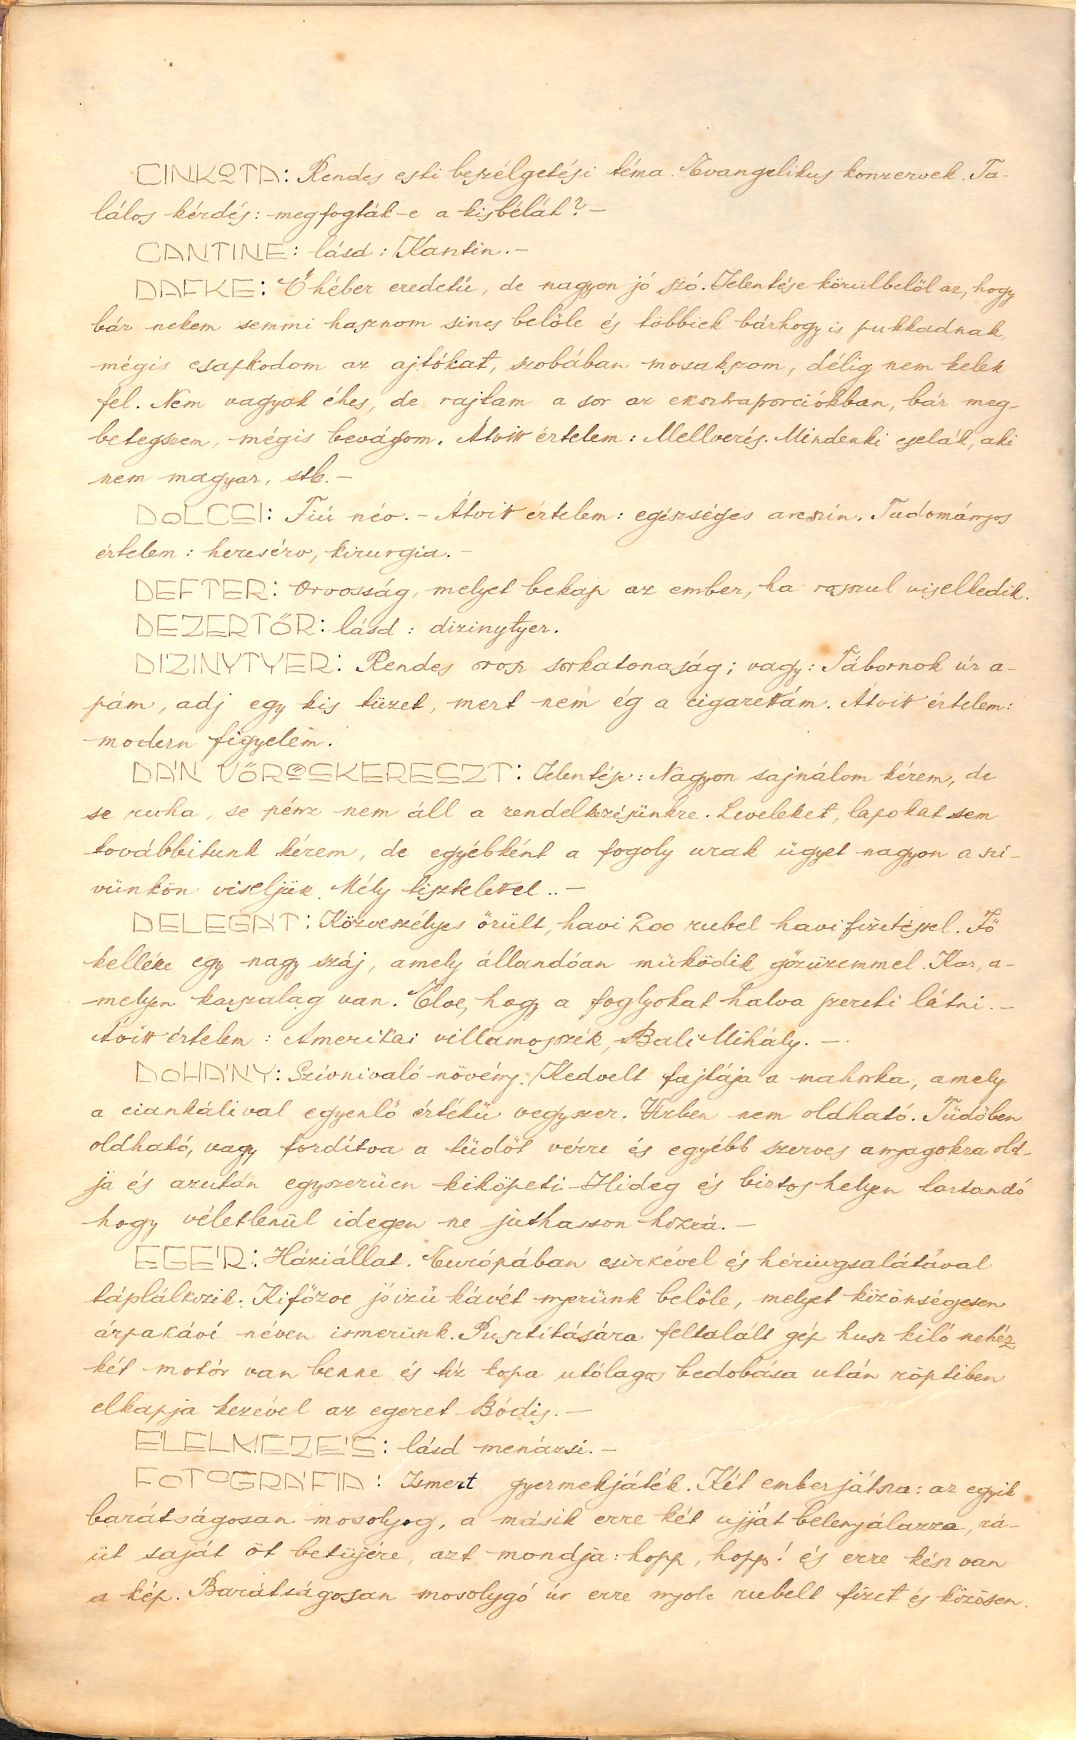 CINKOTA: Rendes esti beszélgetési téma. Evangelikus konzervek. Ta-
lálos kérdés: megfogták-e a kisbélát? -
CANTINE: lásd: Kantin. -
DAFKE: Ó héber eredetü, de nagyon jó szó. Jelentése körülbelöl az, hogy
bár nekem semmi hasznom sincs belöle és többiek bárhogy is pukkadnak,
mégis csapkodom az ajtókat, szobában mosakszom, délig nem kelek
fel. Nem vagyok éhes, de rajtam a sor az eksztraporciókban, bár meg-
betegszem, mégis bevágom. Átvitt értelem: Mellverés. Mindenki cselák, aki
nem magyar, stb. -
DOLCSI: Fiú név. - Átvitt értelem: egészséges arcszín. Tudományos
értelem: heresérv, kirurgia. -
DEFTER: Orvosság, melyet bekap az ember, ha rosszul viselkedik.
DEZERTŐR: lásd: dizinytyer.
DIZINYTYER: Rendes orosz sorkatonaság; vagy: Tábornok úr a-
pám, adj egy kis tüzet, mert nem ég a cigarettám. Átvitt értelem:
modern figyelem.
DÁN VÖRÖSKERESZT: Jelentése: Nagyon sajnálom kérem, de
se ruha, se pénz nem áll a rendelkezésünkre. Leveleket, lapokat sem
továbbitunk kérem, de egyébként a fogoly urak ügyét nagyon a szí-
vünkön viseljük. Mély tisztelettel.. -
DELEGÁT: Közveszélyes örült, havi 200 rubel havi fizetéssel. Fö
kelléke egy nagy száj, amely állandóan müködik gözüzemmel. Kar, a-
melyen karszalag van. Elve, hogy a foglyokat halva szereti látni. -
Átvitt értelem: Amerikai villamosszék, Bali Mihály. -
DOHÁNY: Szívnivaló növény. Kedvelt fajtája a mahorka, amely
a ciankálival egyenlö értékü vegyszer. Vízben nem oldható. Tüdöben
oldható, vagy fordítva a tüdöt vérre és egyébb szerves anyagokra olt-
ja és azután egyszerüen kiköpeti - Hideg és biztos helyen tartandó
hogy véletlenül idegen ne juthasson hozzá. -
EGÉR: Háziállat. Európában csirkével és héringsalátával
táplálkozik. Kifözve jóizü kávét nyerünk belöle, melyet közönségesen
árpakávé néven ismerünk. Pusztítására feltalált gép husz kiló nehéz
két motór van benne és tíz kopa utólagos bedobása után röptiben
elkapja kezével az egeret Bódis. -
ÉLELMEZÉS: lásd menázsi. -
FOTOGRÁFIA: Ismert gyermekjáték. Két ember játsza: az egyik
barátságosan mosolyog, a másik erre két ujját belenyálazza, rá-
üt saját öt betüjére, azt mondja: hopp, hopp! és erre kész van
a kép. Barátságosan mosolygó úr erre nyolc rubelt fizet és közösen